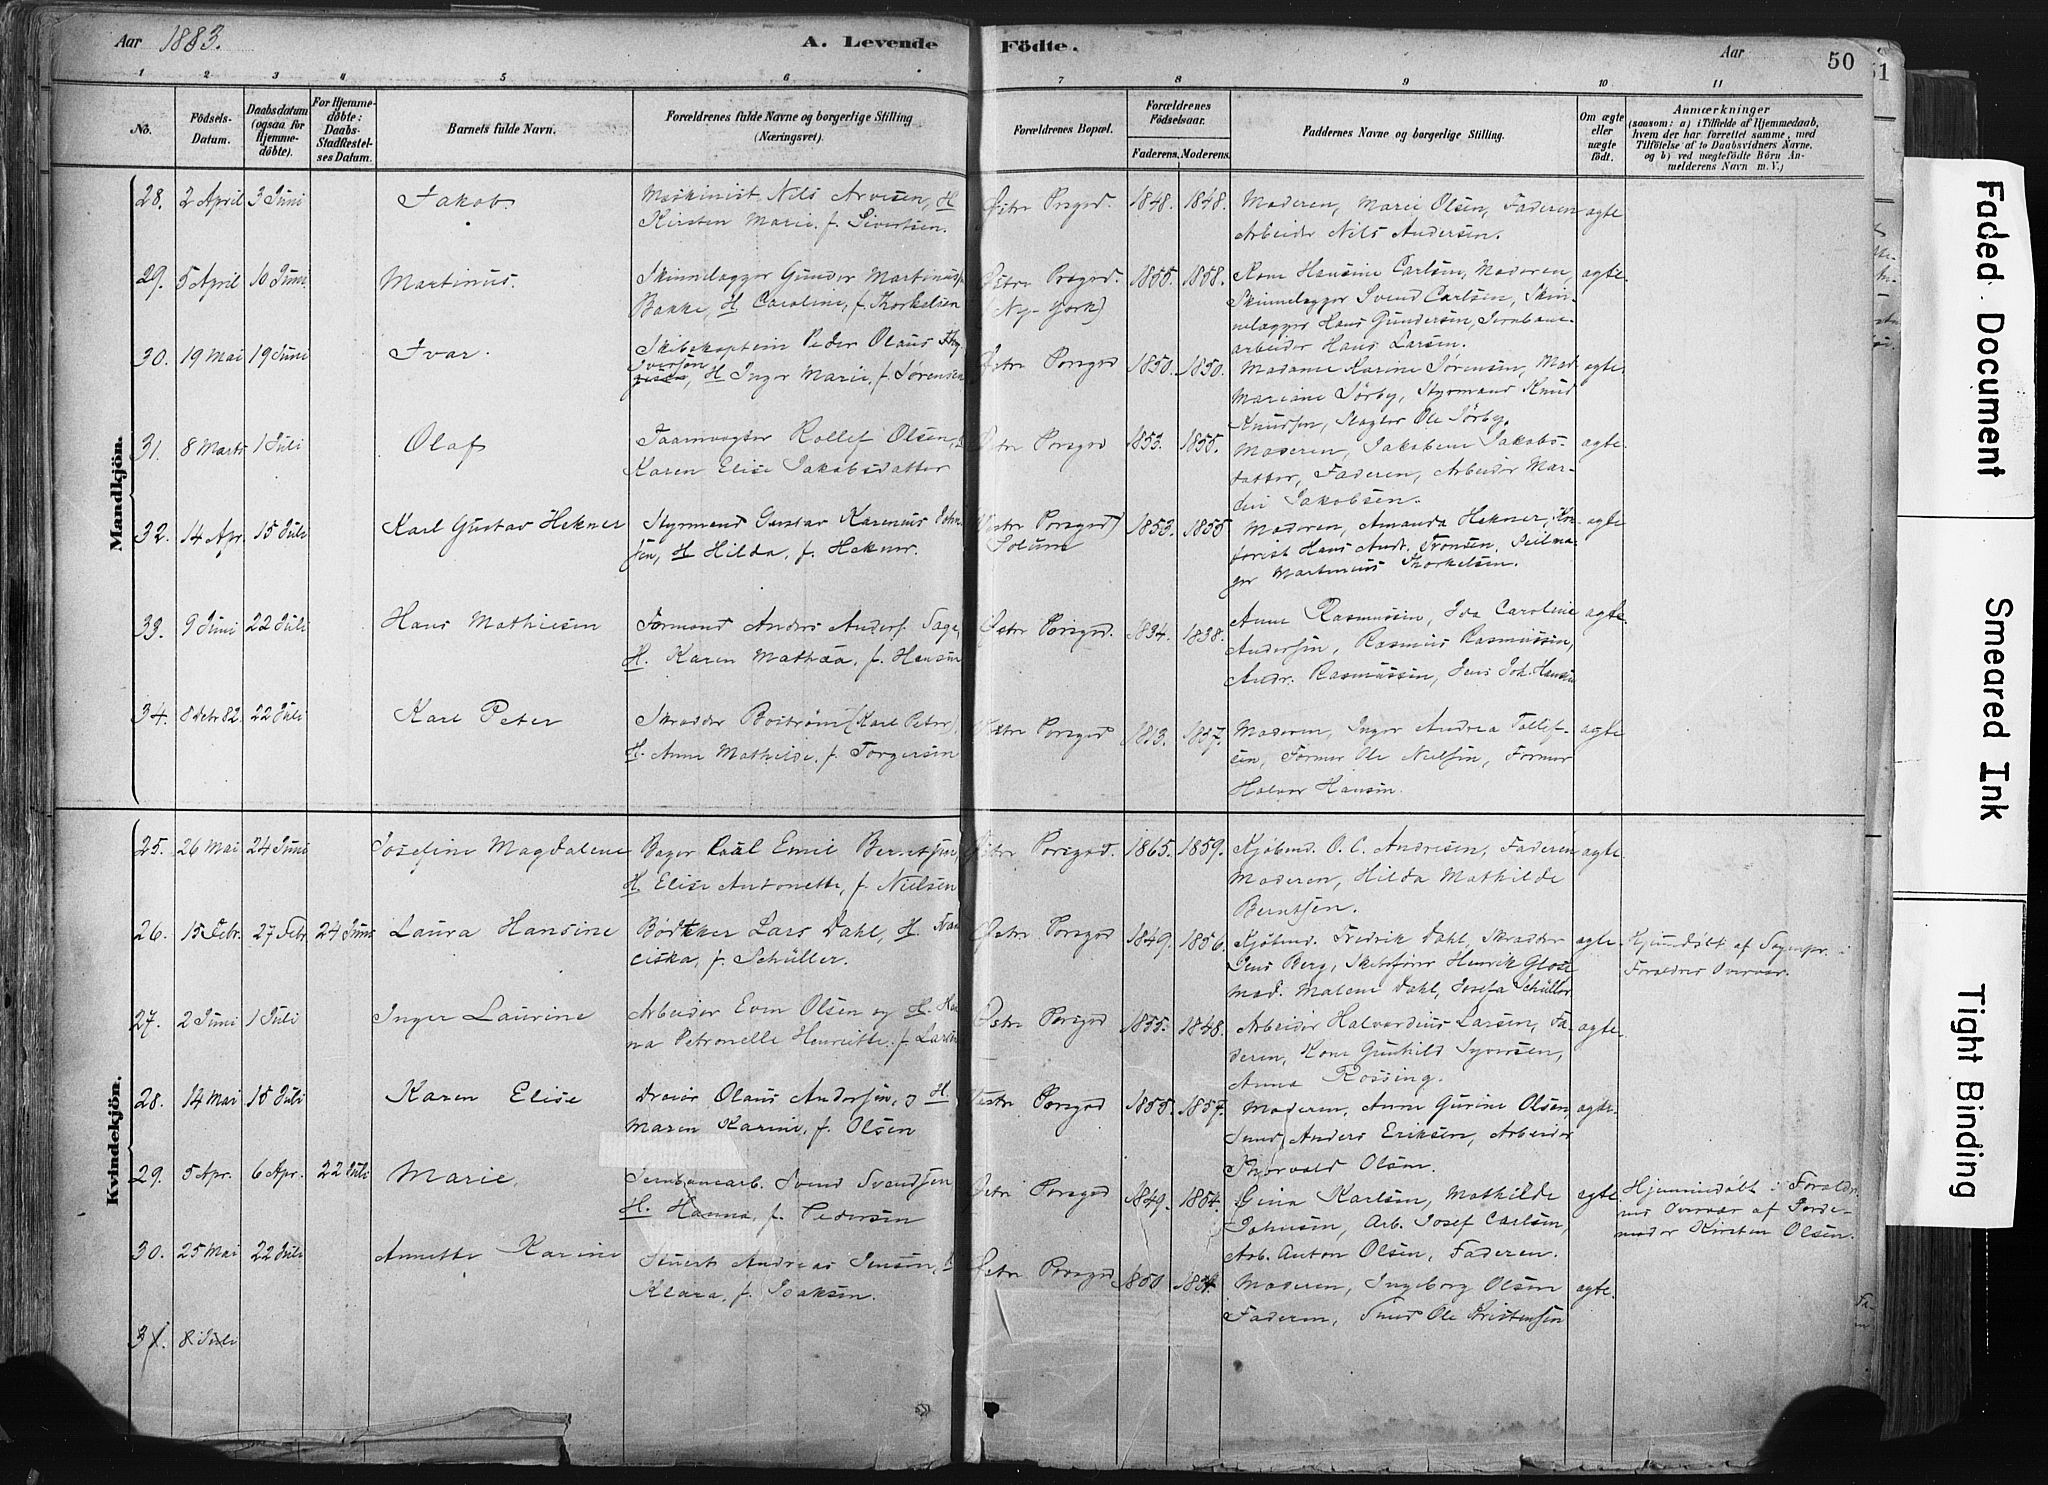 Aar 1883.
A. Levende Födte.
Aar
50
51
1 2 3 4 5 6 7 8 9 10 11
No.
Födsels-Datum.
Daabsdatum (ogsaa for Hjemme-döbte).
For Hjemme-döbte: Daabs-Stadfæstel-ses Datum.
Barnets fulde Navn.
Forældrenes fulde Navne og borgerlige Stilling (Næringsvei).
Forældrenes Bopæl.
Forældrenes Födselsaar.
Faderens. Moderens.
Faddernes Navne og borgerlige Stilling.
Om ægte eller uægte födt.
Anmærkninger (saasom: a) i Tilfælde af Hjemmedaab, hvem der har forrettet samme, med Tilföielse af to Daabsvidners Navne, og b) ved uægtefödte Börn An-melderens Navn m. V.;)
Mandkjön.
28. 2 April 3 Juni Jakob. Maskinist Nils Arvesen, H Østre Porsgrd. 1848. 1848. Moderen, Marie Olsen, Faderen ægte
Kirsten Marie f. Sivertsen. Arbeider Nils Andersen.
29. 5 April 10 Juni Martinus. Skinnelægger Gunder Martinus Østre Porsgrd. 1855. 1858. Kone Hansine Carlsen, Moderen, ægte
Bakke, H Caroline, f. Thorkelsen (Ny-York) Skinnelægger Svend Carlsen, Skin-
nelægger Hans Gundersen, Jernbane-
arbeider Hans Larsen.
30. 19 Mai 19 Juni Ivar. Skibskaptein Peder Olaus Østre Porsgrd 1850. 1850. Madame Karine Sørensen, Mad ægte
Iversen, H Inger Marie, f. Sørensen Mariane Sørby, Styrmand Knud
Knudsen, Slagter Ole Sørby.
31. 8 Marts 1 Juli Olaf Rollef Olsen, Østre Porsgrd 1853. 1855. Moderen, Jakobine Jakobs- ægte
Karen Elise Jakobsdatter datter, Faderen, Arbeider Mar-
Jakobsen.
32. 14 Apr. 15 Juli Karl Gustav Hekner Styrmand Gustav Karenius John- Vestre Porsgrd) 1853. 1855 Moderen, Amanda Hekner, ægte
sen, H Hilda, f. Hekner. Solum Hans Andr. Tronsen, Seilma-
ger Martinius Thorkelsen.
33. 9 Juni 22 Juli Hans Mathiesen Tormand Anders Anders. Østre Porsgrd. 1834. 1838. Anne Rasmussen, Ida Caroline ægte
H. Karen Mathea, f. Hansen Andersen, Rasmus Rasmussen,
Andr. Rasmussen, Jens Joh. Hansen
34. 8 Octr 82. 22 Juli Karl Peter Skrædder Boström (Karl Peter), Vestre Porsgrd 1813. 1857. Moderen, Inger Andrea Tollef- ægte
H. Anne Mathilde, f. Torgersen sen, Former Ole Neilsen, Former
Halvor Hansen.
Kvindekjön.
25. 26 Mai 24 Juni Josefine Magdalene Bager Emil Berntsen, Østre Porsgrd. 1865. 1859. Kjøbmd. O. C. Andresen, Faderen ægte
H. Elise Antonette, f. Nielsen Moderen, Hilda Mathilde
Berntsen.
26. 15 Febr. 27 Febr 24 Juni Laura Hansine Bødtker Lars Dahl, H. Fran Østre Porsgrd 1849. 1856. Kjøbmd. Fredrik Dahl, Skrædder ægte Hjemmdøbt af Sognepr. i
ciska, f. Schüller. Jens Berg, Skibsfører Henrik Glose Forældres Overvær.
Mad. Malene Dahl, Josefa Schüller
27. 2 Juni 1 Juli Inger Laurine Arbeider Even Olsen og H. Han Østre Porsgrd 1855. 1848. Arbeider Halvardius Larsen, Fa- ægte
na Petronelle Henriette f. Larsen deren, Kone Gunhild Syversen,
Anna Rossing.
28. 14 Mai 15 Juli Karen Elise Dreier Olaus Andersen, og H. Vestre Porsgrd 1855. 1857. Moderen, Anne Gurine Olsen, ægte
Maren Karine, f. Olsen Smed Anders Eriksen, Arbeider
Thorvald Olsen.
29. 5 Apr. 6 Apr. 22 Juli Marie. Jernbanearb. Svend Svendsen Østre Porsgrd 1849. 1854. Karlsen, Mathilde ægte Hjemmedøbt i Forældre-
H. Hanna, f. Pedersen Johnsen, Arb. Josef Carlsen, nes Overvær af Jorde-
Arb. Anton Olsen, Faderen. moder Kirsten Olsen.
30. 25 Mai 22 Juli Annette Karine Stuert Andreas Jensen, H Østre Porsgrd 1850. 1854. Moderen, Ingeborg Olsen ægte
Klara, f. Isaksen. Faderen, Smed Ole Kristensen
31. 8 Juli
Faded Document
Smeared Ink
Tight Binding